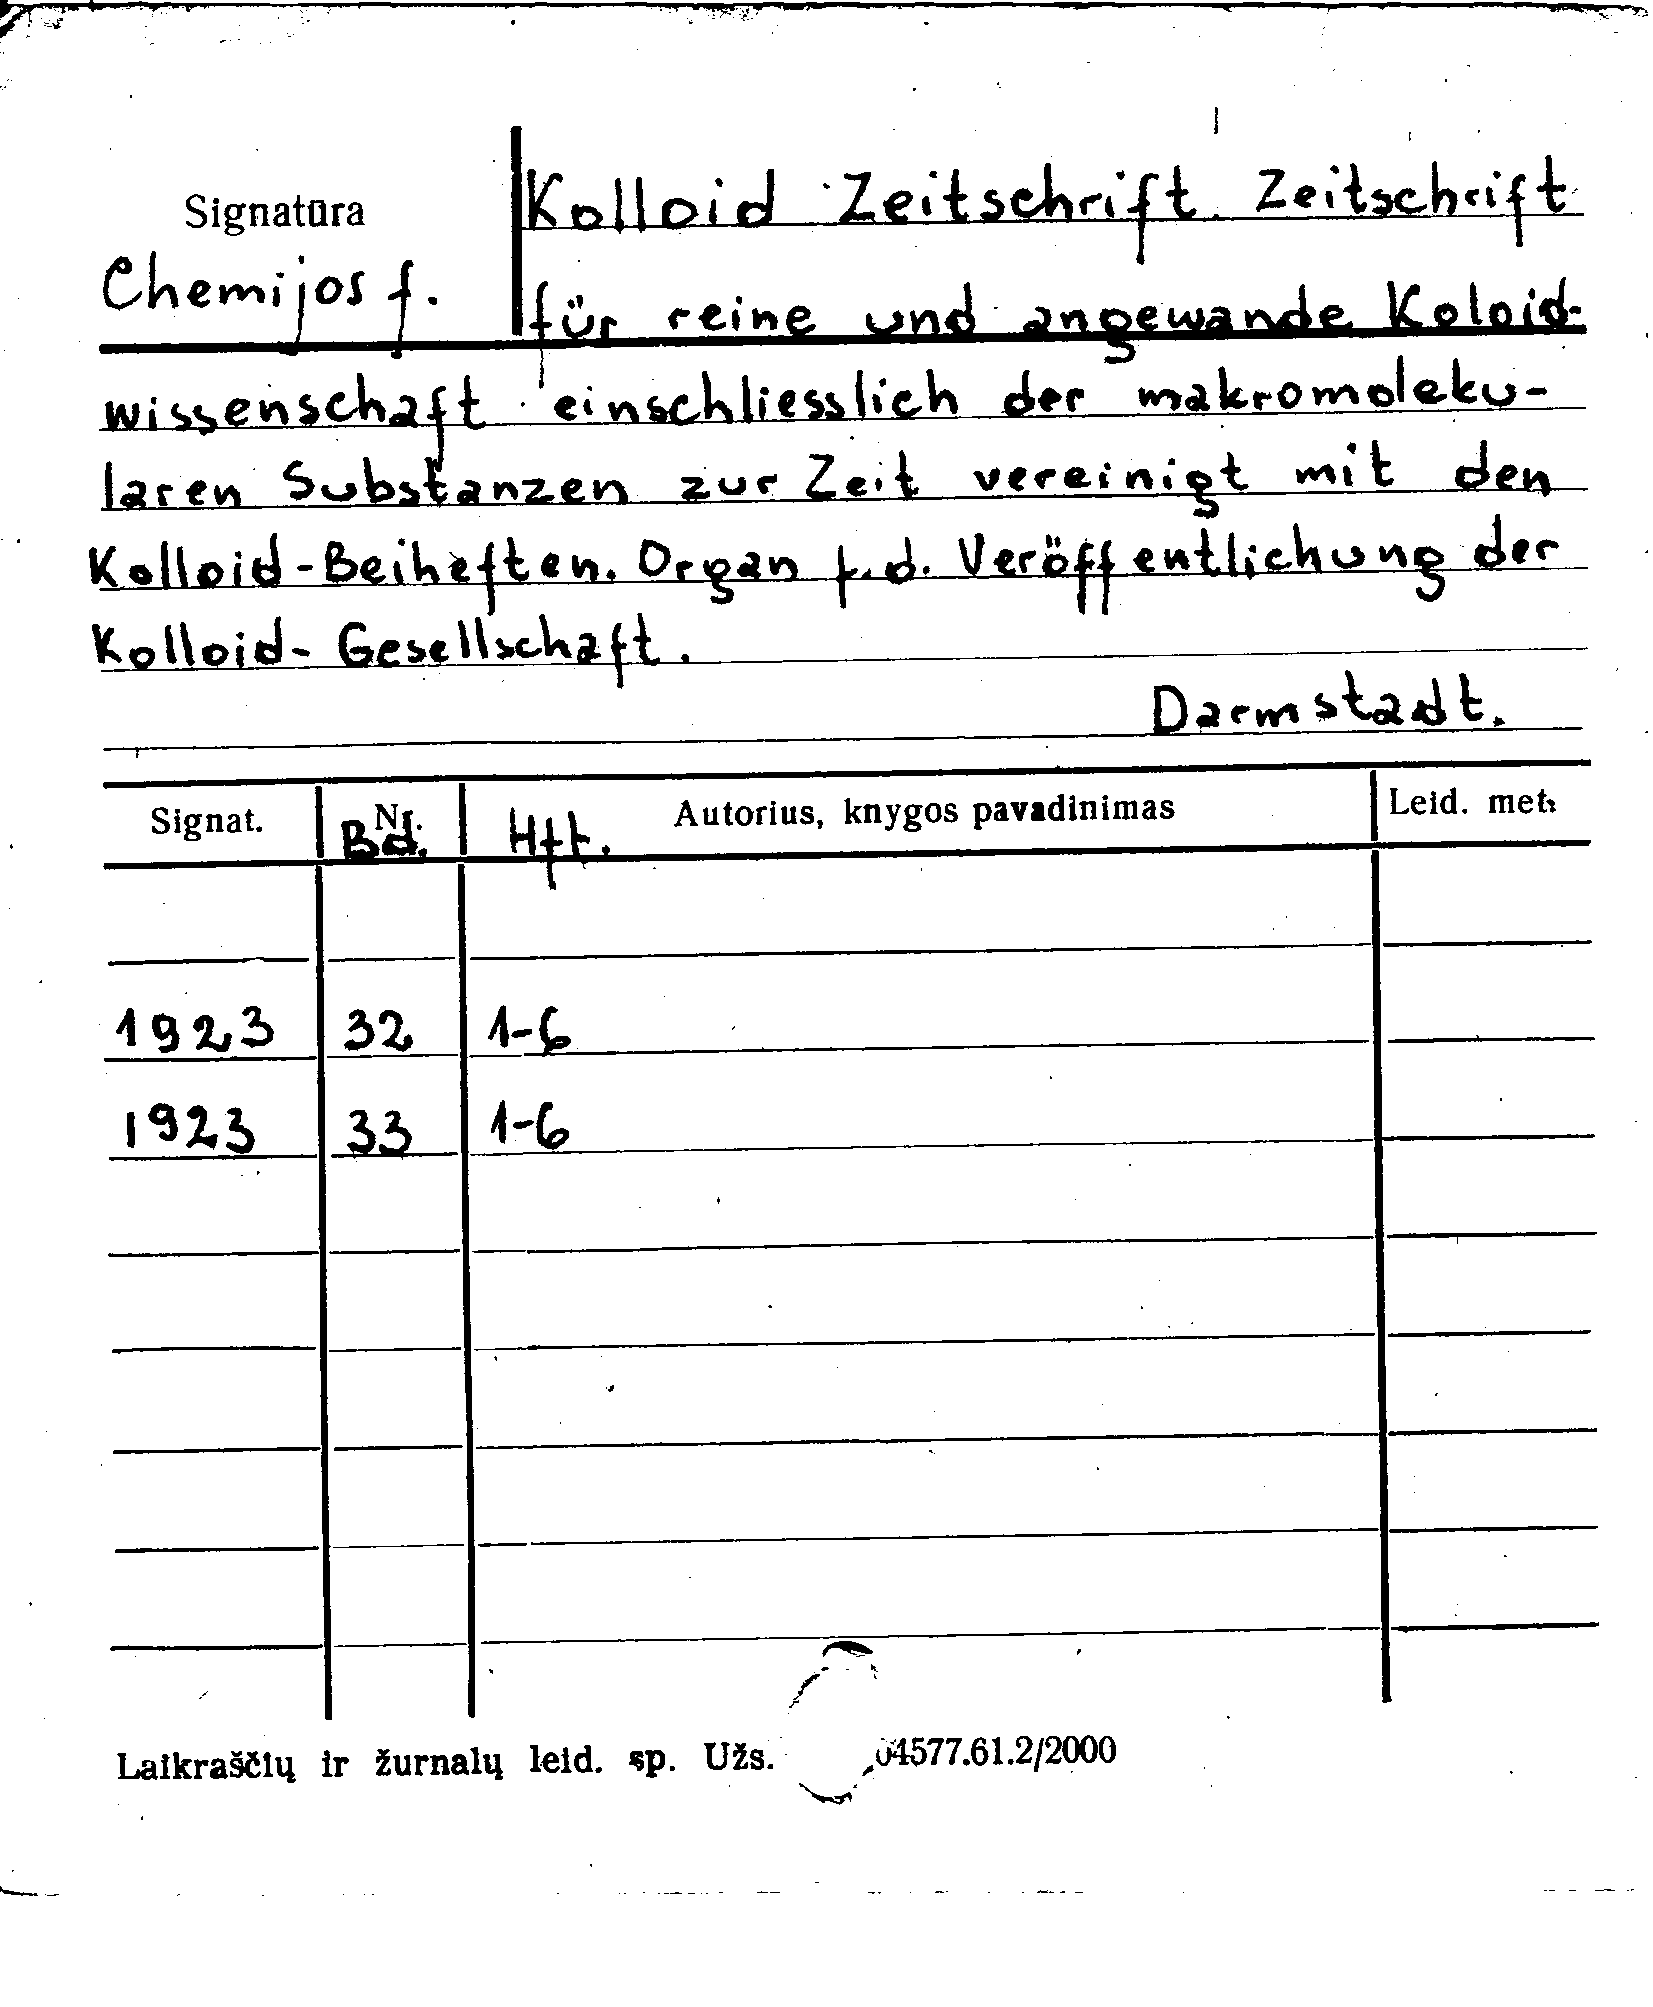 Kolloid Zeitschrift. Zeitschrift
Signatūra
Chemijos f.
für reine und angewande Koloid-
wissenschaft einschliesslich der makromoleku-
laren Substanzen zur Zeit vereinigt mit den
Kolloid-Beiheften. Organ f.d. Veröffentlichung der
Kolloid-Gesellschaft.
Darmstadt.
Signat. Nr. Autorius, knygos pavadinimas Leid. met.
Bd. Hft.
1923 32 1-6
1923 33 1-6
Laikraščių ir žurnalų leid. sp. Užs. 04577.61.2/2000